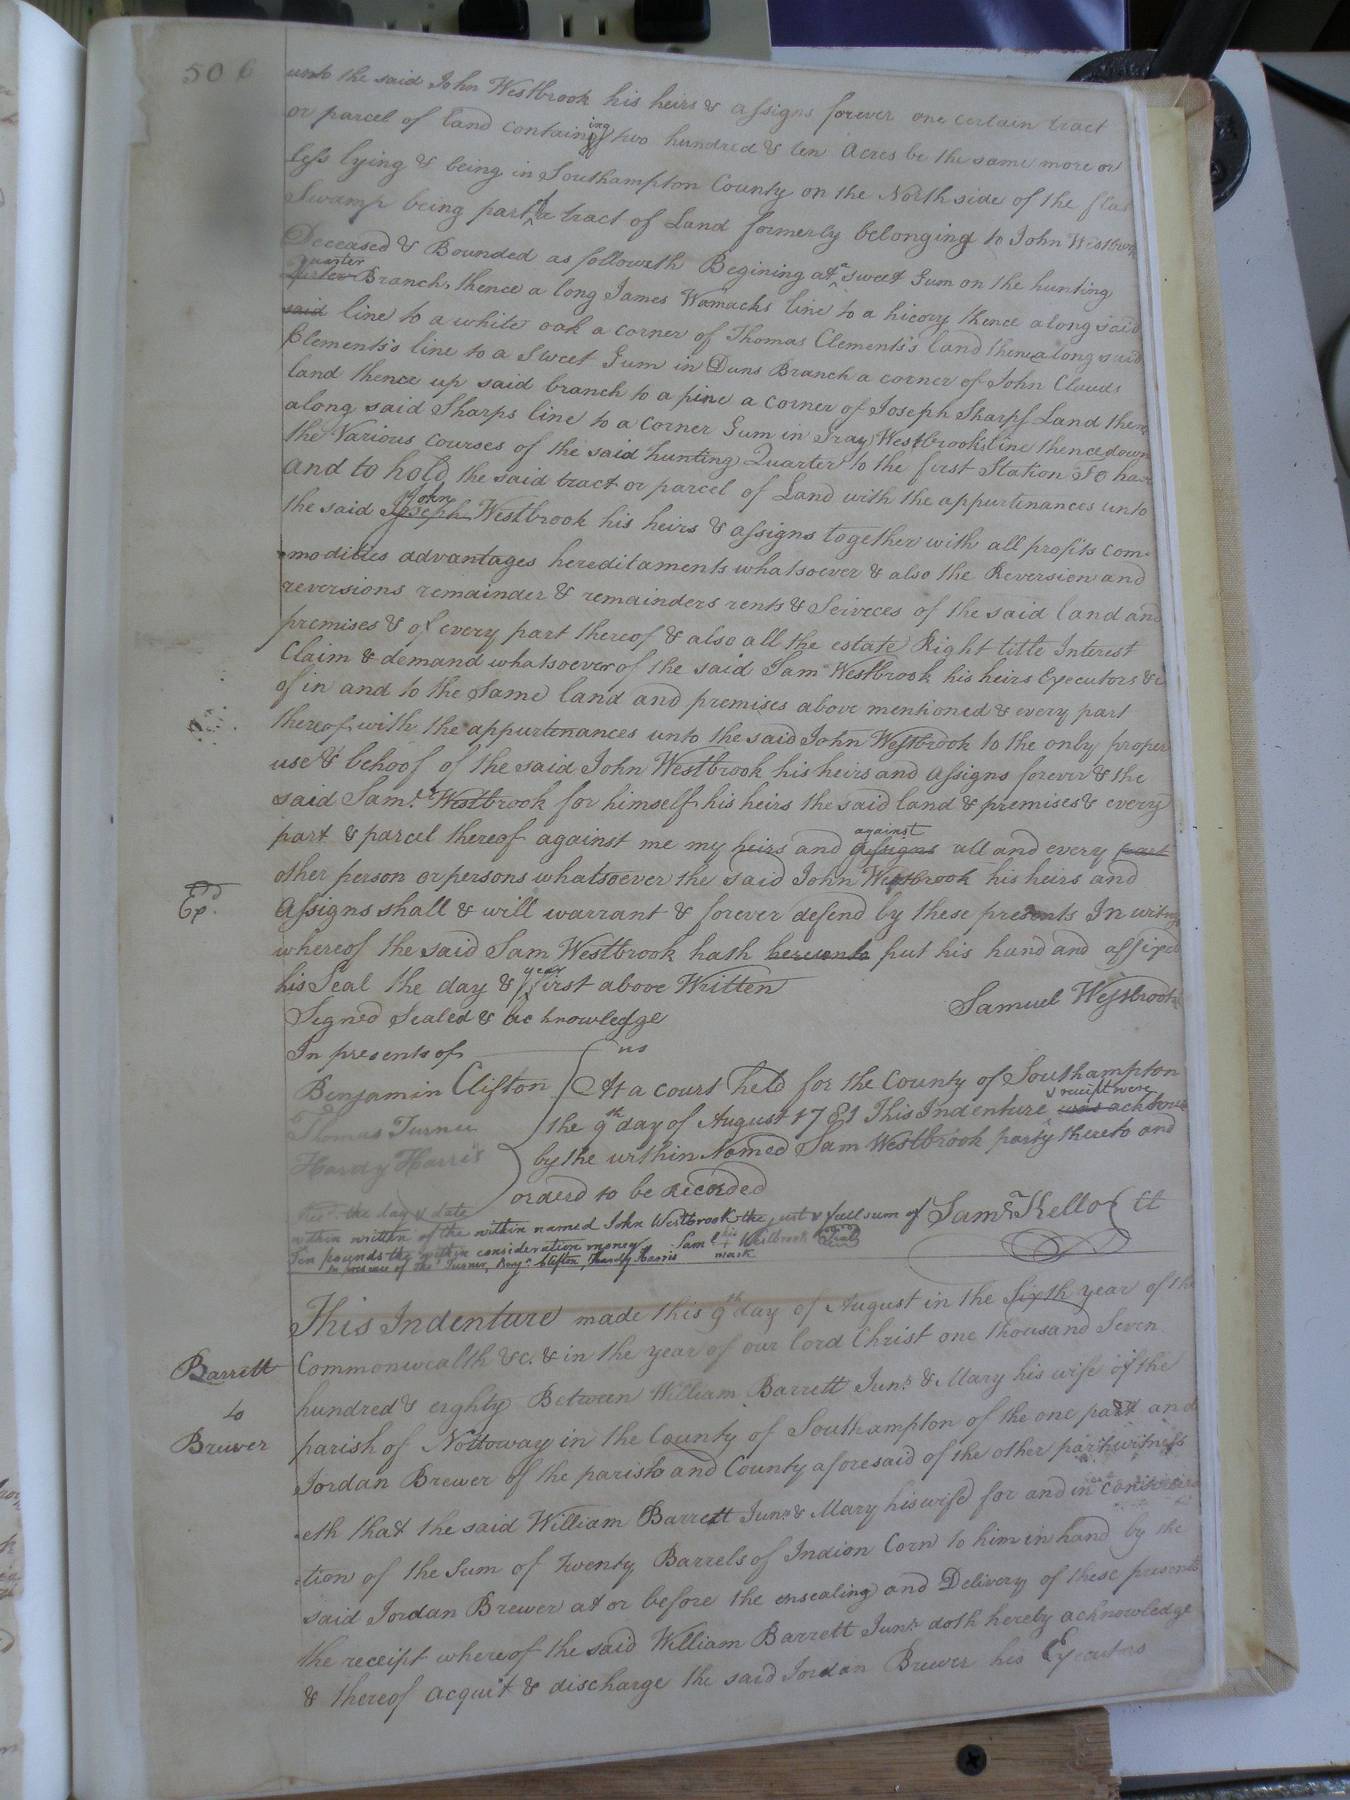 506
unto the said John Westbrook his heirs & assigns forever one certain tract
or parcel of land containing two hundred & ten Acres be the same more or
less lying & being in Southampton County on the North side of the flat
Swamp being part of a tract of Land formerly belonging to John Westbrook
Deceased & Bounded as followeth Begining at a sweet Gum on the hunting
Quarter Branch, thence a long James Wamacks line to a hicory thence along said
said line to a white oak a corner of Thomas Clements's land thence along said
Clements's line to a Sweet Gum in Duns Branch a corner of John Clauds
land thence up said branch to a pine a corner of Joseph Sharps Land thence
along said Sharps line to a corner Gum in Gray Westbrooks line thence down
the Various courses of the said hunting Quarter to the first Station To have
and to hold the said tract or parcel of Land with the appurtinances unto
the said Joseph John Westbrook his heirs & assigns together with all profits com-
modities advantages hereditaments whatsoever & also the Reversion and
reversions remainder & remainders rents & Serveces of the said land and
premises & of every part thereof & also all the estate Right title Interest
Claim & demand whatsoever of the said Sam Westbrook his heirs Executors &c
of in and to the Same land and premises above mentioned & every part
thereof with the appurtenances unto the said John Westbrook to the only proper
use & behoof of the said John Westbrook his heirs and assigns forever & the
said Saml. Westbrook for himself his heirs the said land & premises & every
part & parcel thereof against me my heirs and assigns against all and every part
other person or persons whatsoever the said John Westbrook his heirs and
Exd.
Assigns shall & will warrant & forever defend by these presents In witness
whereof the said Sam Westbrook hath hereunto put his hand and affixed
his Seal the day & year first above Written
Samuel Westbrook
Signed Sealed & acknowledge
In presents of us
Benjamin Clifton
Thomas Turner
Hardy Harris
At a court held for the County of Southampton
the 9th day of August 1781 This Indenture was & receipt were acknow
by the within Named Sam Westbrook party thereto and
orderd to be Recorded
Saml. Kello Cl
Recd. the day & date
within written of the within named John Westbrook the just & full sum of
Ten pounds the within consideration money Saml his + mark Westbrook Seal
In presence of Thos. Turner, Benjn. Clifton, Hardy Harris
Barrett
to
Brewer
This Indenture made this 9th day of August in the Sixth year of the
Commonwealth &c. & in the year of our lord Christ one thousand Seven
hundred & eighty Between William Barrett Junr. & Mary his wife of the
parish of Nottoway in the County of Southampton of the one part and
Jordan Brewer of the parish and County aforesaid of the other part witness
eth that the said William Barrett Junr. & Mary his wife for and in considera
tion of the Sum of twenty Barrels of Indion Corn to him in hand by the
said Jordan Brewer at or before the ensealing and Delivery of these presents
the receipt whereof the said William Barrett Junr. doth hereby acknowledge
& thereof acquit & discharge the said Jordan Brewer his Executors